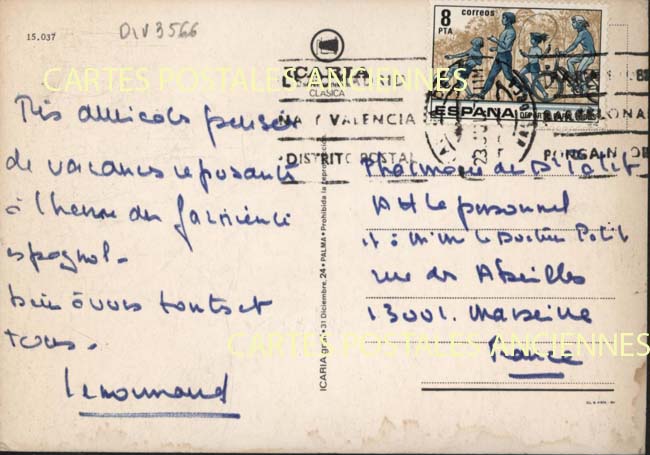 15.037
DIV3566
CLASICA
8
PTA
correos
ESPAÑA
CARTES POSTALES ANCIENNES
MADRID
NA Y VALENCIA
BARCELONA
DISTRITO POSTAL
PONGA
Très amicales pensées
de vacances reposantes
à l'heure du farniente
espagnol.
bien à vous toutes et
tous.
Lenormand
ICARIA graf. • 31 Diciembre, 24 • PALMA • Prohibida la reproducción.
Pharmacie de
et le personnel
et à Mr le Docteur Petit
rue des Abeilles
13001. Marseille
France
CARTES POSTALES ANCIENNES